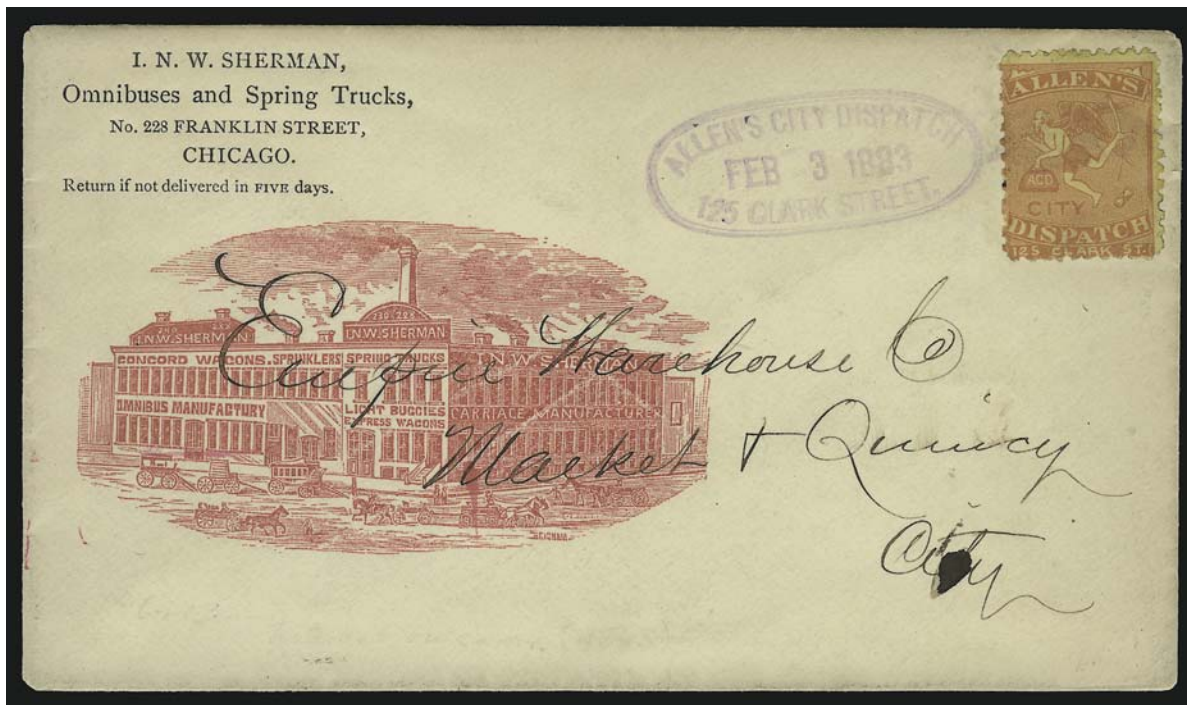 I. N. W. SHERMAN,
Omnibuses and Spring Trucks,
No. 228 FRANKLIN STREET,
CHICAGO.
Return if not delivered in FIVE days.
ALLEN'S CITY DISPATCH
FEB 3 1883
125 CLARK STREET.
ALLEN'S
ACD
CITY
DISPATCH
125 CLARK St.
230 228
I.N.W. SHERMAN
I.N.W. SHERMAN
I.N.W. SHERMAN
CONCORD WAGONS. SPRINKLERS SPRING TRUCKS
OMNIBUS MANUFACTURY
LIGHT BUGGIES
EXPRESS WAGONS
CARRIAGE MANUFACTURER
Empire Warehouse Co
Market + Quincy
City